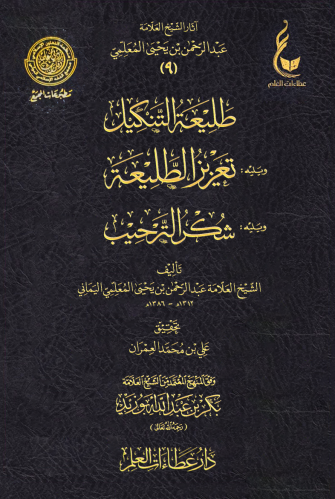 آثار الشيخ العلامة
عبد الرحمن بن يحيى المعلمي
(٩)
عطاءات العلم
مطبوعات المجمع
طليعة التنكيل
ويليه: تعزيز الطليعة
ويليه: شكر الترحيب
تأليف
الشيخ العلامة عبد الرحمن بن يحيى المعلمي اليماني
١٣١٢هـ - ١٣٨٦هـ
تحقيق
علي بن محمد العمران
وفق المنهج المعتمد من الشيخ العلامة
بكر بن عبد الله أبو زيد
(رحمه الله تعالى)
دار عطاءات العلم